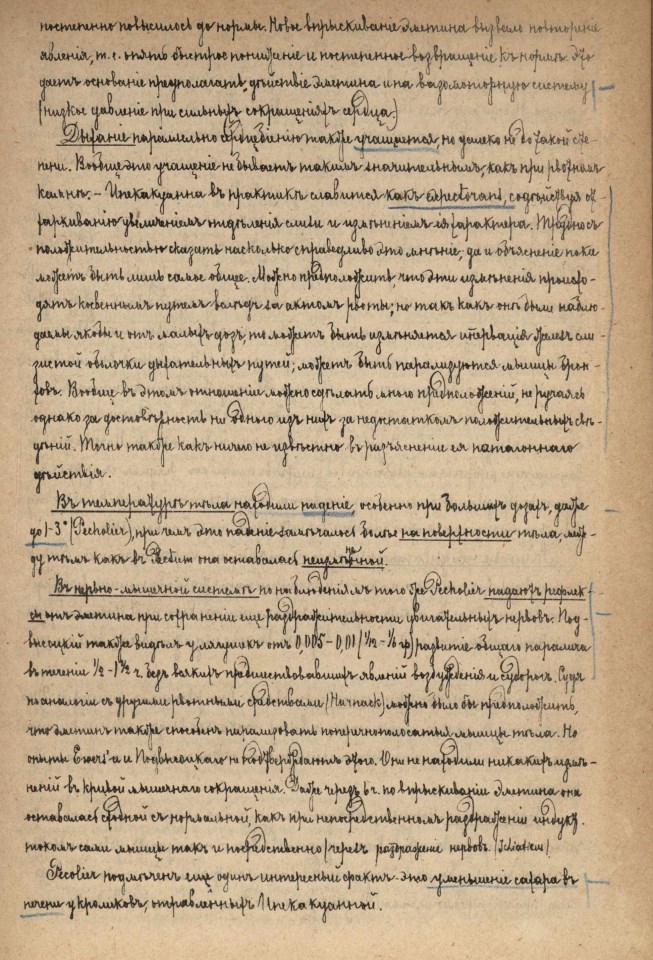 постепенно повысилось до нормы. Новое впрыскиваніе эметина вызвало повтореніе
явленія, т.е. опять быстрое пониженіе и постепенное возвращеніе къ нормѣ. Это
даетъ основаніе предполагать, дѣйствіе эметина и на вазомоторную систему
(низкое давленіе при сильныхъ сокращеніяхъ сердца.)
Дыханіе параллельно сердцебіенію также учащается, но далеко не до такой сте-
пени. Вообще это учащеніе не бываетъ такимъ значительнымъ, какъ при рвотномъ
камнѣ. – Ипекакуанна въ практикѣ славится какъ expectorans, содѣйствуя от-
харкиванію увеличеніемъ отдѣленія слизи и измѣненіемъ ея характера. Трудно съ
положительностью сказать насколько справедливо это мнѣніе, да и объясненіе пока
можетъ быть лишь самое общее. Можно предположить, что эти измѣненія происхо-
дятъ косвеннымъ путемъ вслѣдъ за актомъ рвоты; но такъ какъ онѣ были наблю-
даемы якобы и отъ малыхъ дозъ, то можетъ быть измѣняется иннервація железъ сли-
зистой оболочки дыхательныхъ путей; можетъ быть парализуются мышцы брон-
ховъ. Вообще въ этомъ отношеніи можно сдѣлать много предположеній, не ручаясь
однако за достовѣрность ни одного изъ нихъ за недостаткомъ положительныхъ свѣ-
дѣній. Точно также какъ ничего не извѣстно въ разъясненіе ея патогеннаго
дѣйствія.
Въ температурѣ тѣла находили паденіе, особенно при большихъ дозахъ, даже
до 1-3° (Pecholier), при чемъ это паденіе замѣчалось болѣе на поверхности тѣла, меж-
ду тѣмъ какъ въ она оставалась неизмѣнной.
Въ нервно-мышечной системѣ по наблюденіямъ того же Pecholier падаютъ рефлек-
сы отъ эметина при сохраненіи еще раздражительности двигательныхъ нервовъ. Под-
высоцкій также видѣлъ у лягушекъ отъ 0,005 – 0,01 (1/12 – 1/6 гр) развитіе общаго паралича
въ теченіи 1/2 – 1 1/2 ч. безъ всякихъ предшествовавшихъ явленій возбужденія и судорогъ. Судя
по аналогіи съ другими рвотными средствами (Harnack) можно было бы предположить,
что эметинъ также способенъ парализовать поперечнополосатыя мышцы тѣла. Но
опыты и Подвысоцкаго не подтверждаютъ этого. Они не находили никакихъ измѣ-
неній въ кривой мышечнаго сокращенія. Даже черезъ 6 ч. по впрыскиваніи эметина она
оставалась сходной съ нормальной, какъ при непосредственномъ раздраженіи индукт.
токомъ сами мышцы такъ и посредственно (черезъ раздраженіе нервовъ.
подмѣченъ еще одинъ интересный фактъ – это уменьшеніе сахара въ
печени у кроликовъ, отравленныхъ Ипекакуанной.